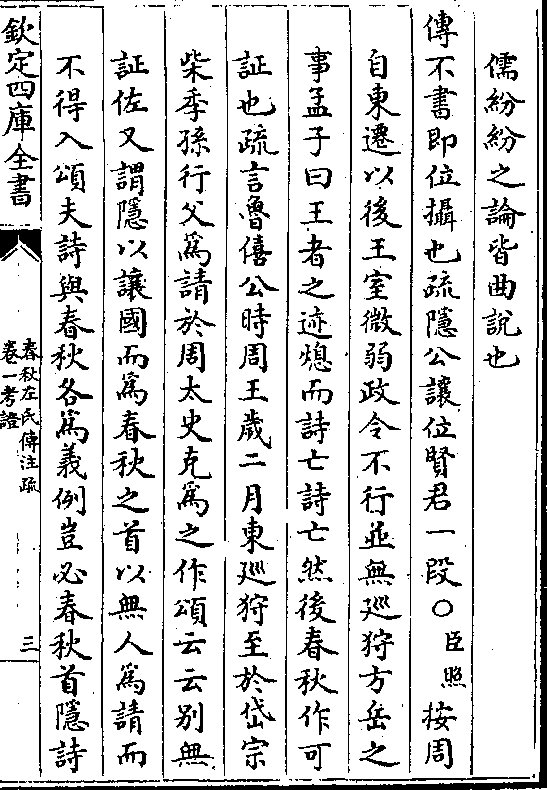 儒紛紛之論皆曲說也
傳不書即位攝也疏隱公讓位賢君一段○臣照按周
自東遷以後王室微弱政令不行並無巡狩方岳之
事孟子曰王者之迹熄而詩亡詩亡然後春秋作可
証也疏言魯僖公時周王歲二月東巡狩至於岱宗
柴季孫行父爲請於周太史克爲之作頌云云别無
証佐又謂隱以讓國而爲春秋之首以無人爲請而
不得入頌夫詩與春秋各爲義例豈必春秋首隱詩
欽定四庫全書
春秋左氏傳注疏
卷一考證
三